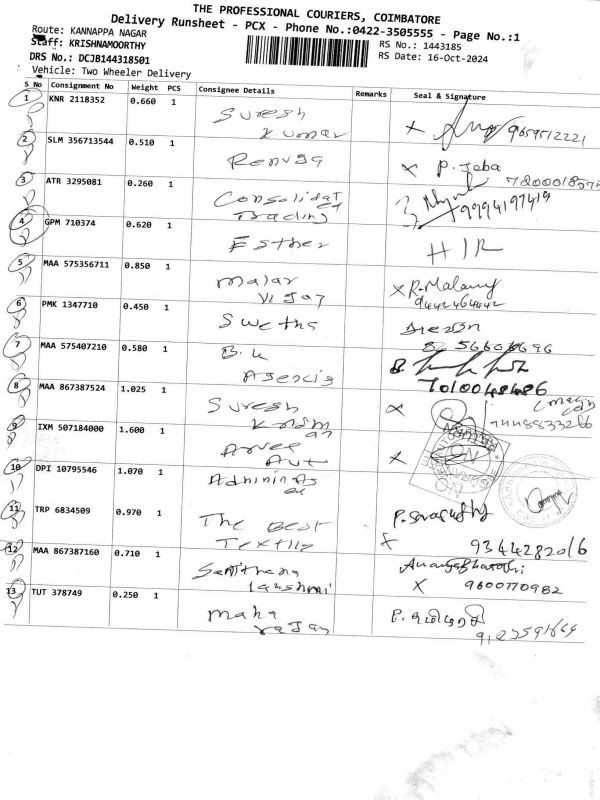 THE PROFESSIONAL COURIERS, COIMBATORE
Delivery Runsheet - PCX - Phone No.:0422-3505555 - Page No.:1
Route: KANNAPPA NAGAR
RS No.: 1443185
Staff: KRISHNAMOORTHY
RS Date: 16-Oct-2024
DRS No.: DCJB144318501
Vehicle: Two Wheeler Delivery
S No Consignment No Weight PCS Consignee Details Remarks Seal & Signature
1 KNR 2118352 0.660 1 Suresh Kumar 9659512221
2 SLM 356713544 0.510 1 Renuga x P. Joba
3 ATR 3295081 0.260 1 Consolidat Trading 9994197419
4 GPM 710374 0.620 1 Esther HIR
5 MAA 575356711 0.850 1 Malar Vijay x R. Malar 9442464442
6 PMK 1347710 0.450 1 Swetha
7 MAA 575407210 0.580 1 B.K Agencis 7010048486
8 MAA 867387524 1.025 1 Suresh x
9 IXM 507184000 1.600 1 x
10 DPI 10795546 1.070 1
11 TRP 6834509 0.970 1 The Best Textile x 9344282016
12 MAA 867387160 0.710 1 lakshmi x 9600770982
13 TUT 378749 0.250 1 Maha rajan